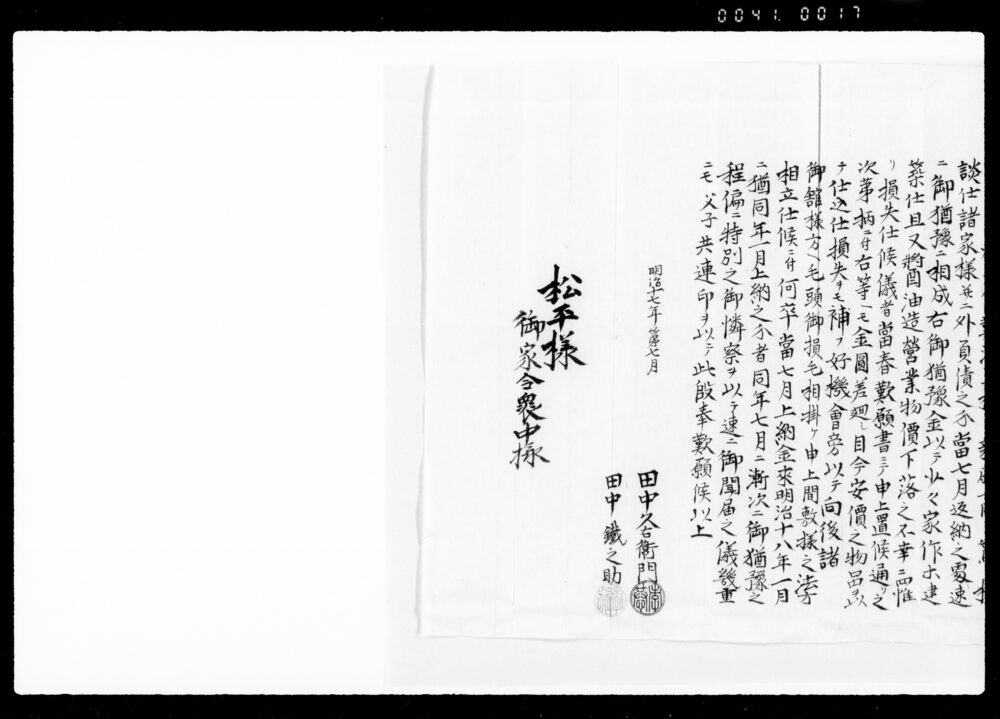 0041. 0017
談仕諸家様并ニ外負債之分當七月返納之處速
ニ御猶豫ニ相成右御猶豫金以テ少々家作等建
築仕且又醤油造營業物價下落之不幸ニ而惟
リ損失仕候儀者當春歎願書ニテ申上置候通リ之
次第柄ニ付右等ヘモ金圓差廻シ目今安價之物品ヲ以
テ仕込仕損失ヲモ補フ好機會旁以テ向後諸
御舘様方ヘ毛頭御損毛相掛ケ申上間敷様之法方
相立仕候ニ付何卒當七月上納金来明治十八年一月
ニ猶同年一月上納之分者同年七月ニ漸次ニ御猶豫之
程偏ニ特別之御憐察ヲ以テ速ニ御聞届之儀幾重
ニモ父子共連印ヲ以テ此段奉歎願候以上
明治十七年第七月
田中久右衛門
田中鐵之助
松平様
御家令衆中様